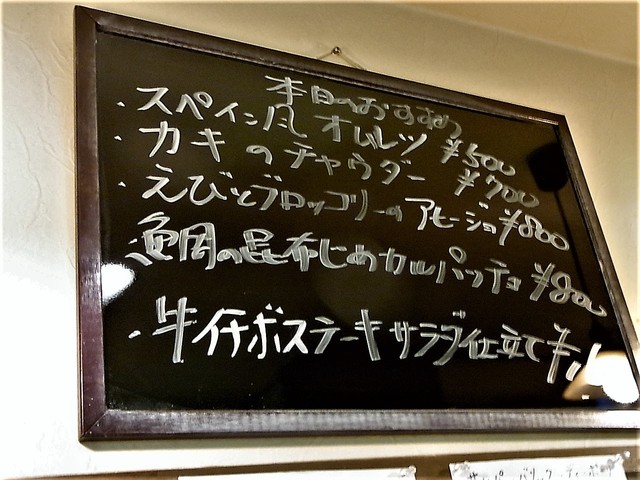 本日のおすすめ
・スペイン風 オムレツ ¥500
・カキのチャウダー ¥700
・えびとブロッコリーのアヒージョ ¥800
・鯛の昆布じめカルパッチョ ¥800
・牛イチボステーキサラダ仕立て ¥1